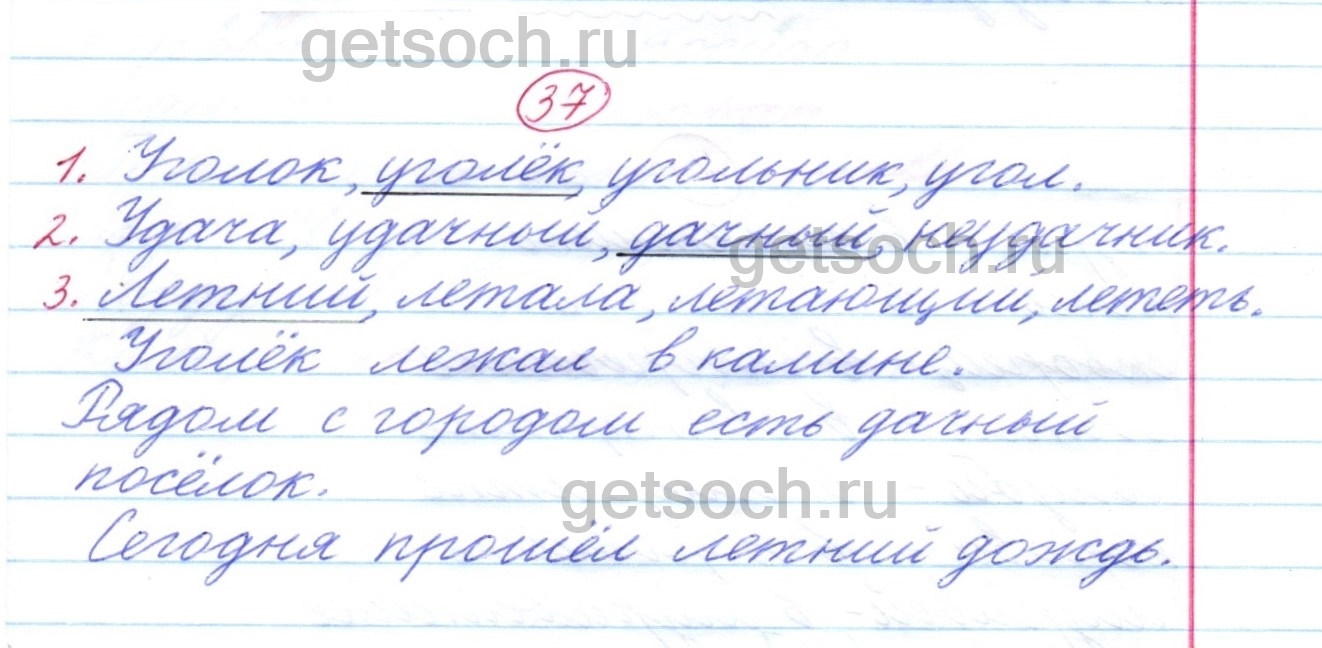 getsoch.ru
37
1. Уголок, уголёк, угольник, угол.
2. Удача, удачный, дачный, неудачник.
getsoch.ru
3. Летний, летала, летающий, лететь.
Уголёк лежал в камине.
Рядом с городом есть дачный
посёлок.
getsoch.ru
Сегодня прошёл летний дождь.